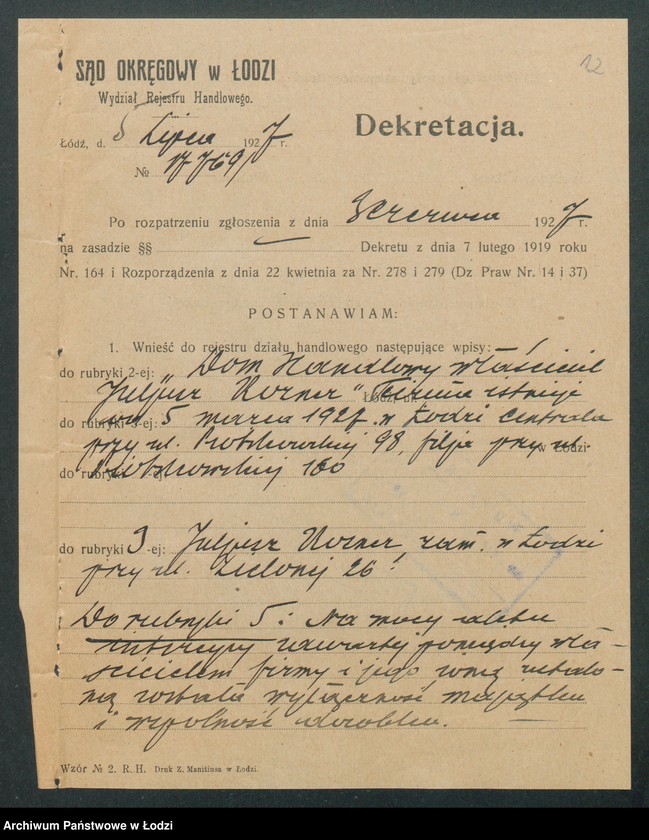 12
SĄD OKRĘGOWY w ŁODZI
Wydział Rejestru Handlowego.
Łódź, d. 5 Lipca 1927 r.
Dekretacja.
№ 17769/
Po rozpatrzeniu zgłoszenia z dnia 3 czerwca 1927 r.
na zasadzie §§ Dekretu z dnia 7 lutego 1919 roku
Nr. 164 i Rozporządzenia z dnia 22 kwietnia za Nr. 278 i 279 (Dz Praw Nr. 14 i 37)
POSTANAWIAM:
1. Wnieść do rejestru działu handlowego następujące wpisy:
do rubryki 2-ej: „Dom Handlowy właściciel
Juljusz Rozner" Łódź Firma istnieje
do rubryki -ej: od 5 marca 1927. w Łodzi centrala
przy ul. Piotrkowskiej 98, filja przy ul. w Łodzi
do rubryki -ej: Piotrkowskiej 160
do rubryki 3-ej: Juljusz Rozner, zam. w Łodzi
przy ul. Zielonej 26!
Do rubryki 5: Na mocy aktu
intercyzy zawartej pomiędzy wła-
ścicielem firmy i jego żoną ustalo-
ną została wyłączność majątku
i wspólność dorobku.
Wzór № 2. R. H. Druk Z. Manitiusa w Łodzi.
Archiwum Państwowe w Łodzi